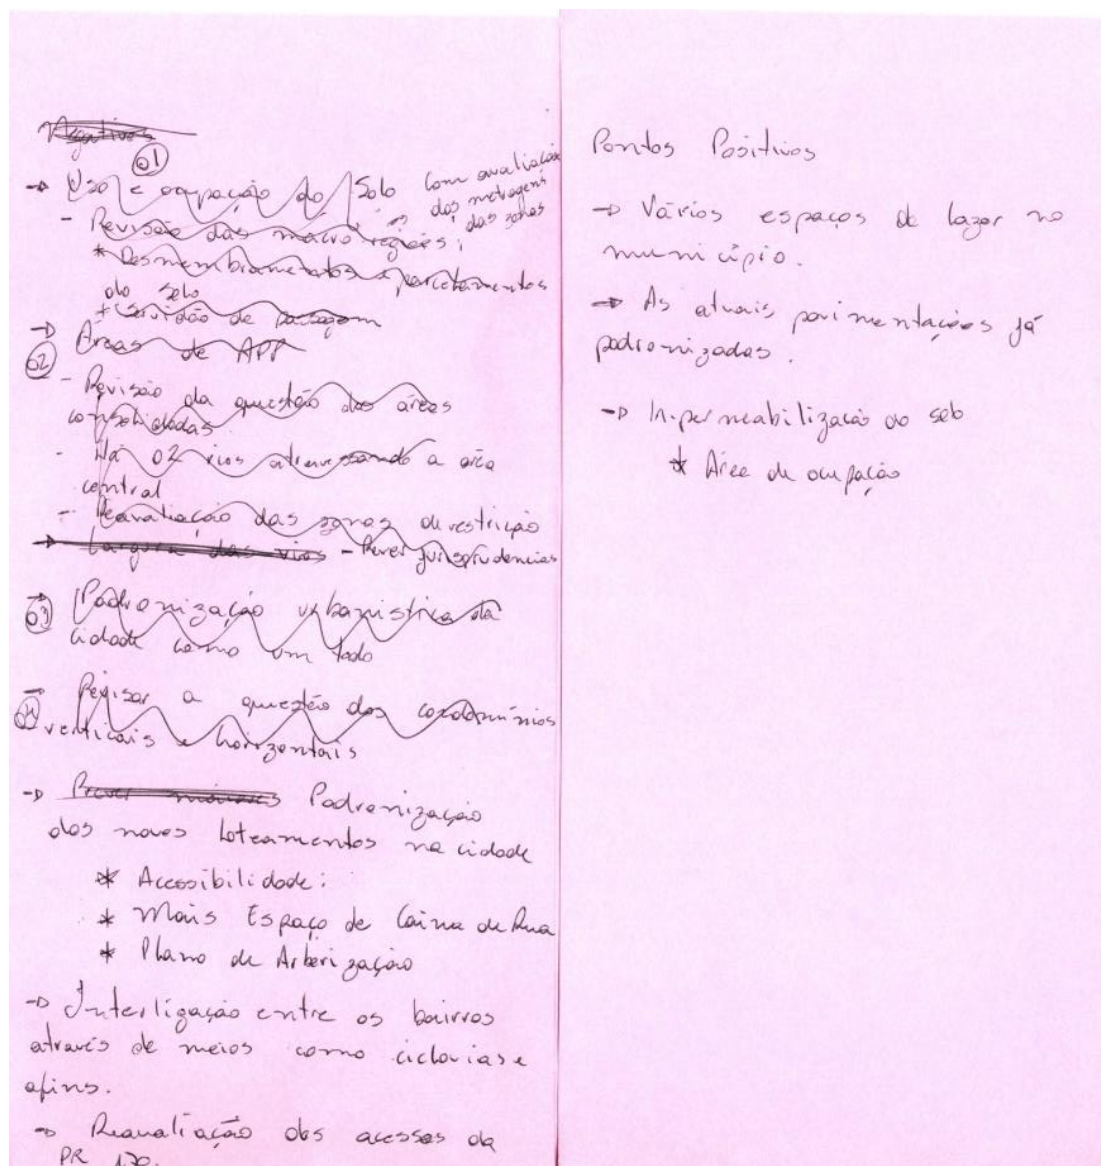 Negativos
01
→ Uso e ocupação do Solo com avaliação
das metragens
das zonas
- Revisão das macro regiões;
* Desmembramentos e parcelamentos
do solo
* Servidão de passagem
→ Áreas de APP
02
- Revisão da questão das áreas
consolidadas
- Há 02 rios atravessando a área
central
- Reavaliação das zonas de restrição
→ Largura das vias - Rever jurisprudencias
→ Padronização urbanistica da
03
cidade como um todo
→ Revisar a questão dos condomínios
04
verticais e horizontais
→ Prever Padronização
dos novos loteamentos na cidade
* Acessibilidade:
* Mais Espaço de Caixa de Rua
* Plano de Arborização
→ Interligação entre os bairros
através de meios como ciclovias e
afins.
→ Reavaliação dos acessos da
PR 170.
Pontos Positivos
→ Vários espaços de lazer no
município.
→ As atuais pavimentações já
padronizadas.
→ Inpermeabilização do solo
* Área de ocupação